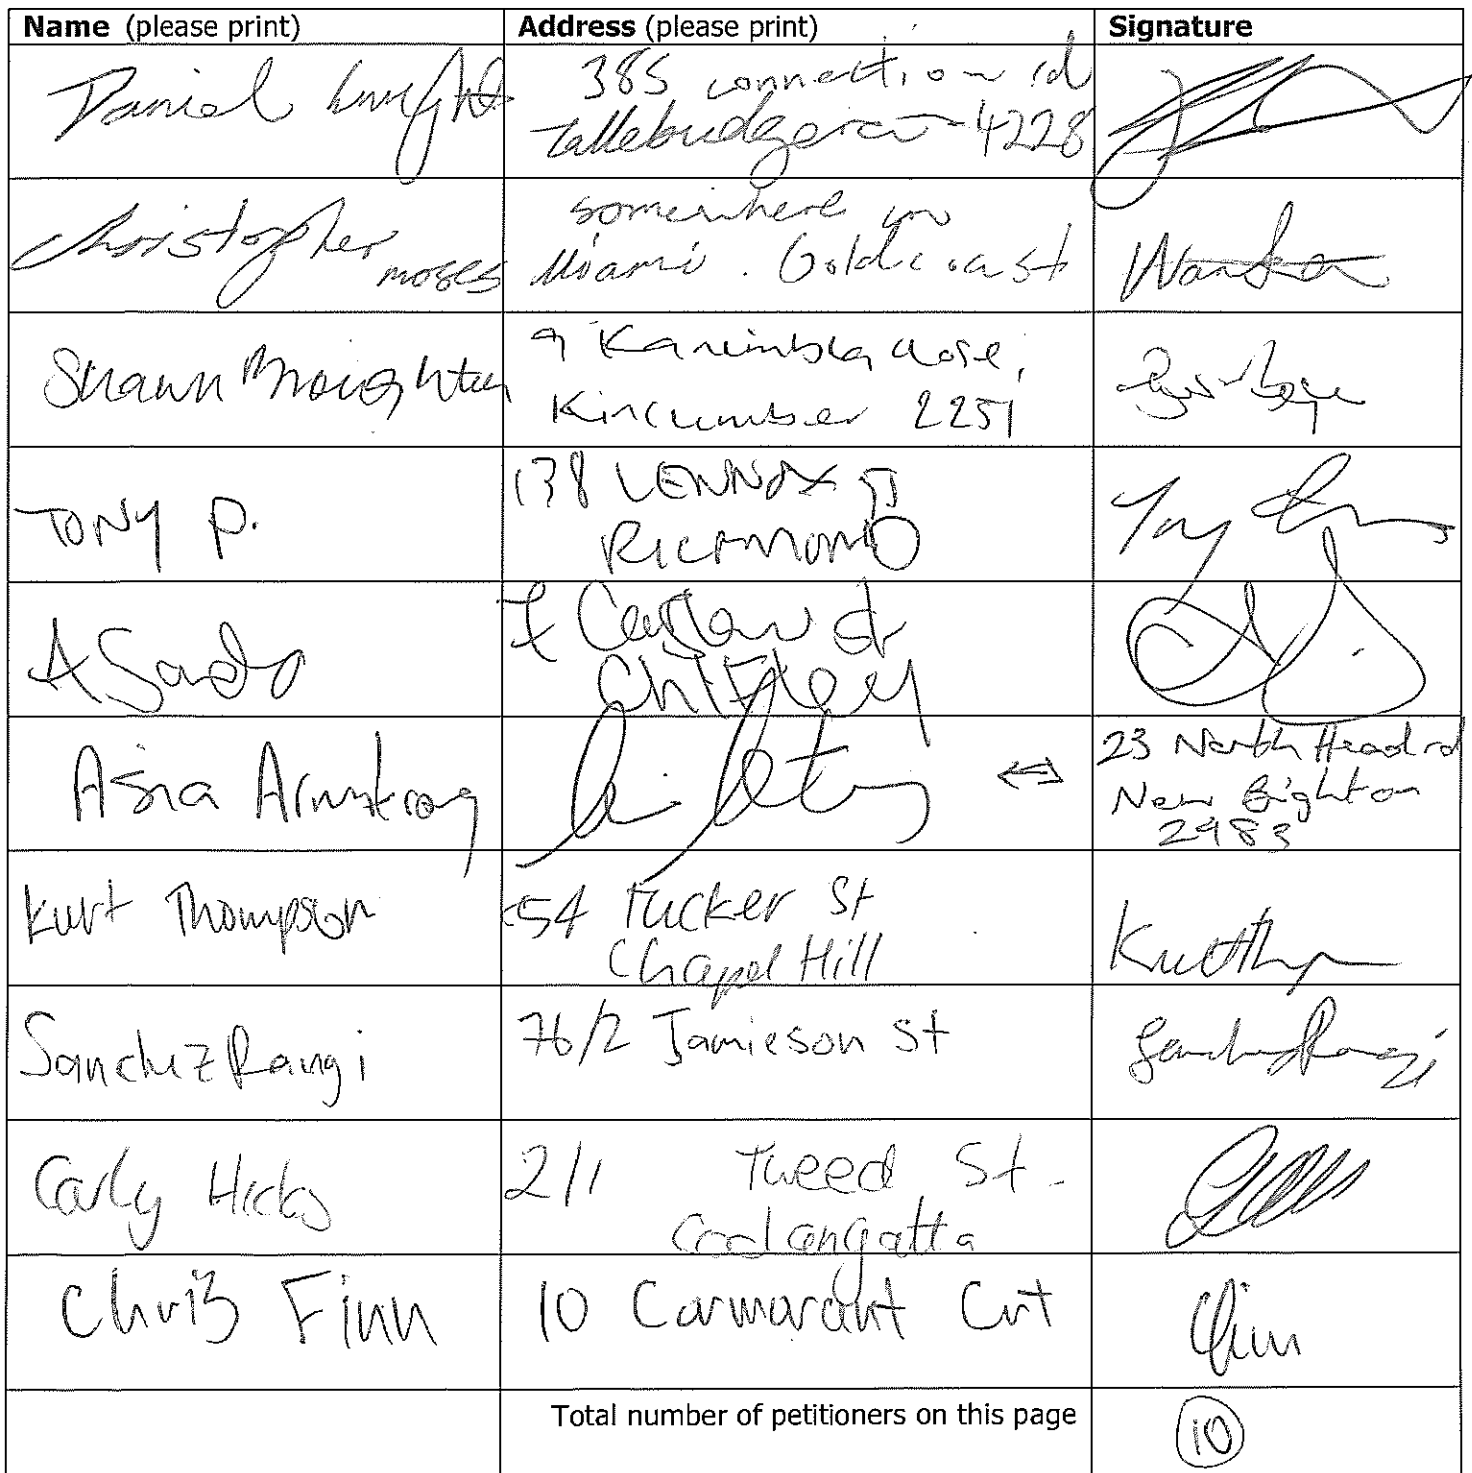 Name (please print) Address (please print) Signature
Daniel 385 connection rd
Tallebudgera 4228
Christopher moses somewhere in
Miami. Goldcoast
Shawn 9 Karimbla close,
Kincumber 2251
TONY P. 138 LENNOX ST
RICHMOND
A Sado 7 st
Chifley
Asia Armstrong ↔ 23 North Head rd
New Brighton
2483
Kurt Thompson 54 Tucker St
Chapel Hill
Sanchez Rangi 76/2 Jamieson St
Carly Hicks 2/1 Tweed St.
Coolangatta
Chris Finn 10 Carmarant Crt
Total number of petitioners on this page 10